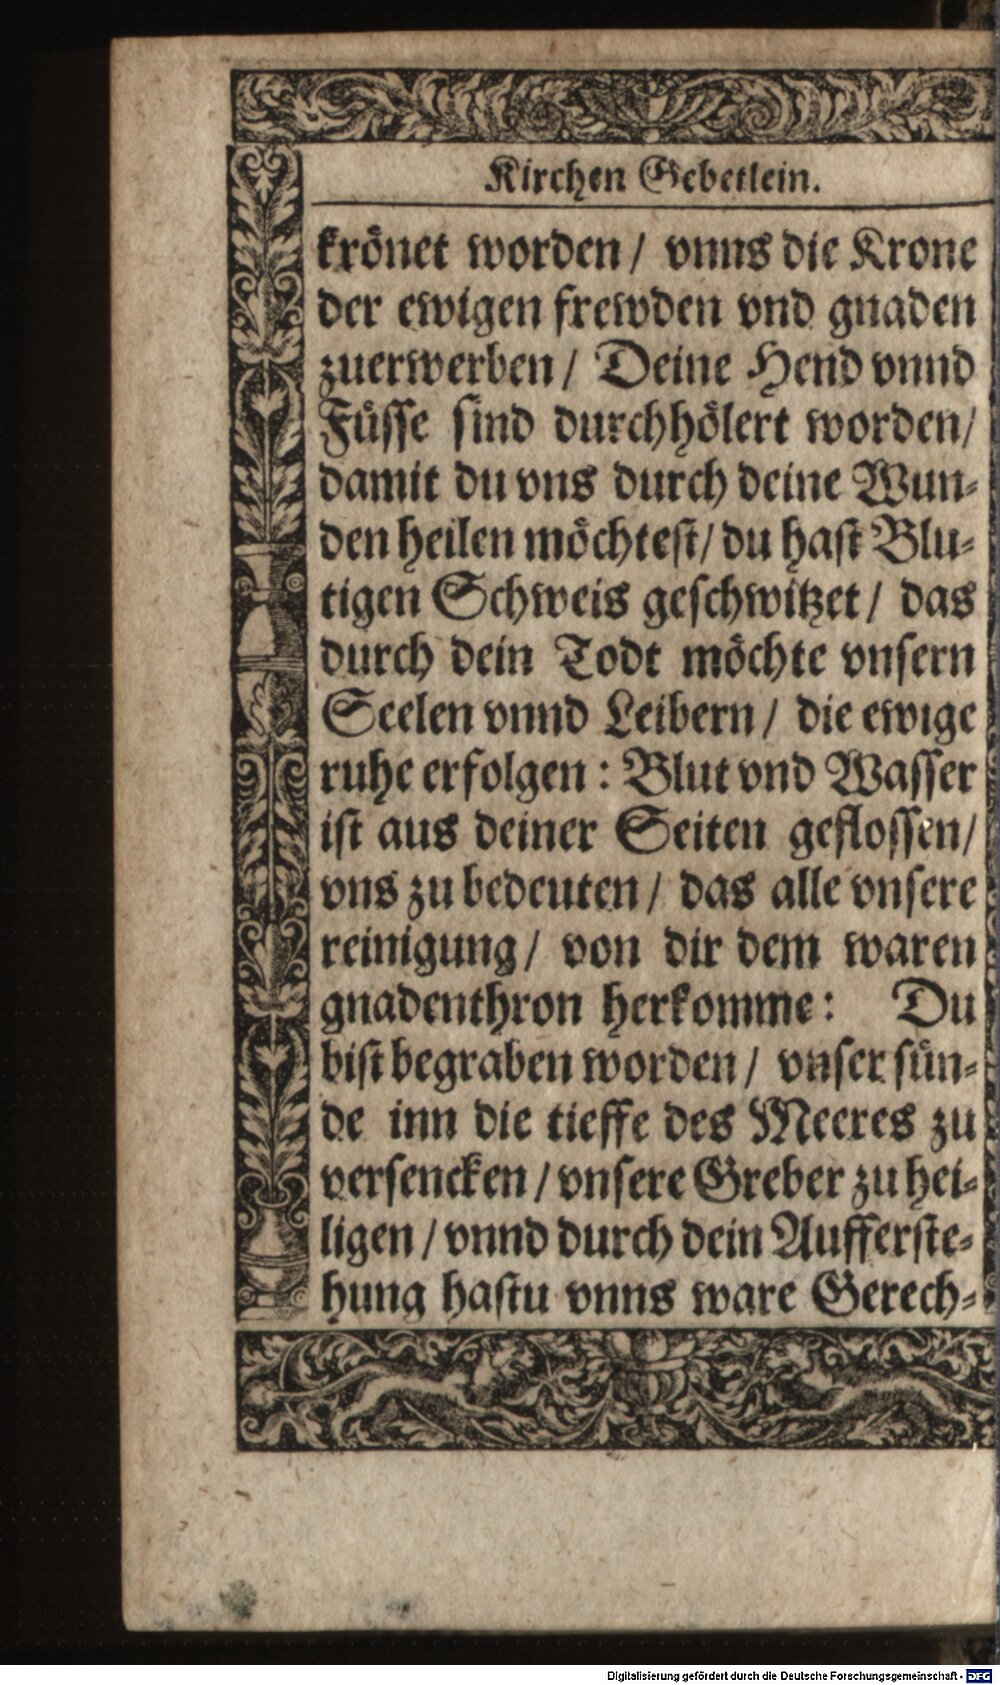 Kirchen Gebetlein.
krönet worden / vnns die Krone
der ewigen frewden vnd gnaden
zuerwerben / Deine Hend vnnd
Füsse sind durchhölert worden/
damit du vns durch deine Wun-
den heilen möchtest/ du hast Blu-
tigen Schweis geschwitzet / das
durch dein Todt möchte vnsern
Seelen vnnd Leibern / die ewige
ruhe erfolgen : Blut vnd Wasser
ist aus deiner Seiten geflossen/
vns zu bedeuten / das alle vnsere
reinigung / von dir dem waren
gnadenthron herkomme : Du
bist begraben worden / vnser sün-
de inn die tieffe des Meeres zu
versencken / vnsere Greber zu hei-
ligen / vnnd durch dein Aufferste-
hung hastu vnns ware Gerech-
Digitalisierung gefördert durch die Deutsche Forschungsgemeinschaft - DFG